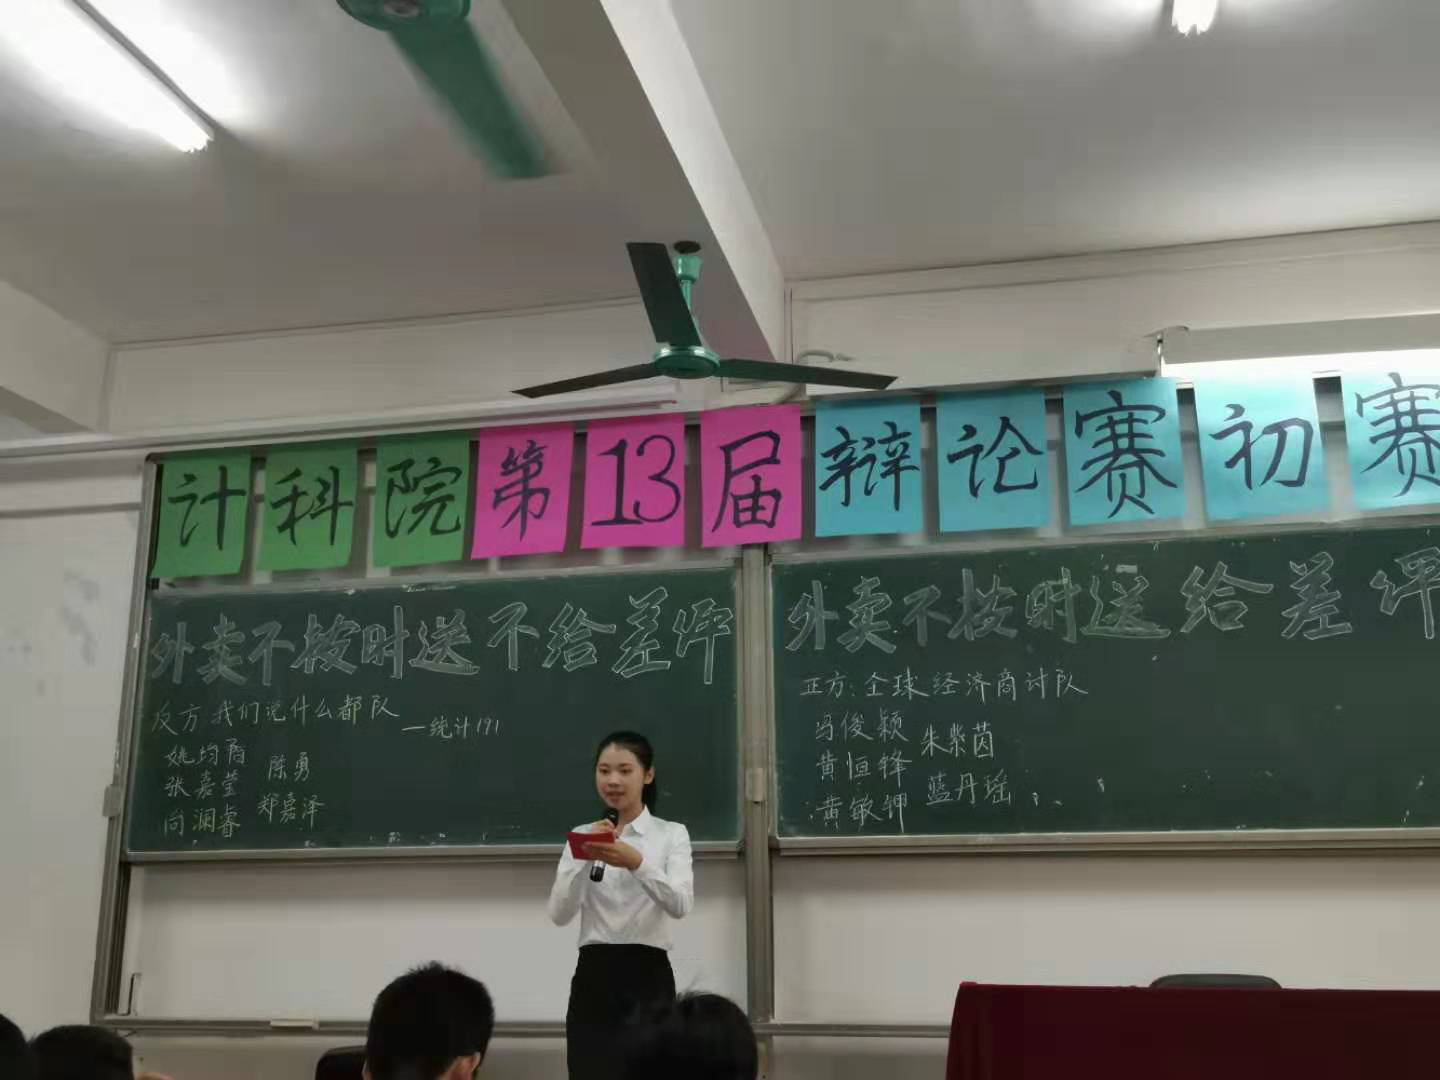 计科院第13届辩论赛初赛
外卖不按时送不给差评
反方:我们说什么都队
—统计191
姚均雨 陈勇
张嘉莹 郑嘉泽
向澜睿
外卖不按时送给差评
正方:全球经济商讨队
冯俊颖 朱紫茵
黄恒锋 蓝丹瑶
黄敏钾